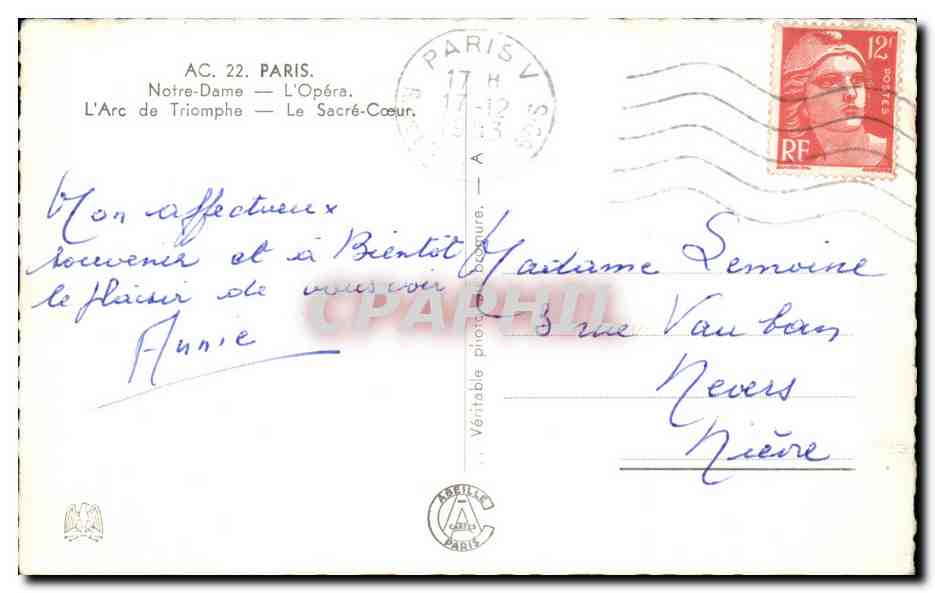 AC. 22. PARIS.
Notre-Dame — L'Opéra.
L'Arc de Triomphe — Le Sacré-Cœur.
PARIS V
17 H
17-12
12F
POSTES
RF
Mon affectueux
souvenir et à Bientôt
le plaisir de vous voir
Annie
Madame Lemoine
3 rue Vauban
Nevers
Nièvre
Véritable photo bromure. — A
CPAPHIL
ABEILLE
CARTES
PARIS